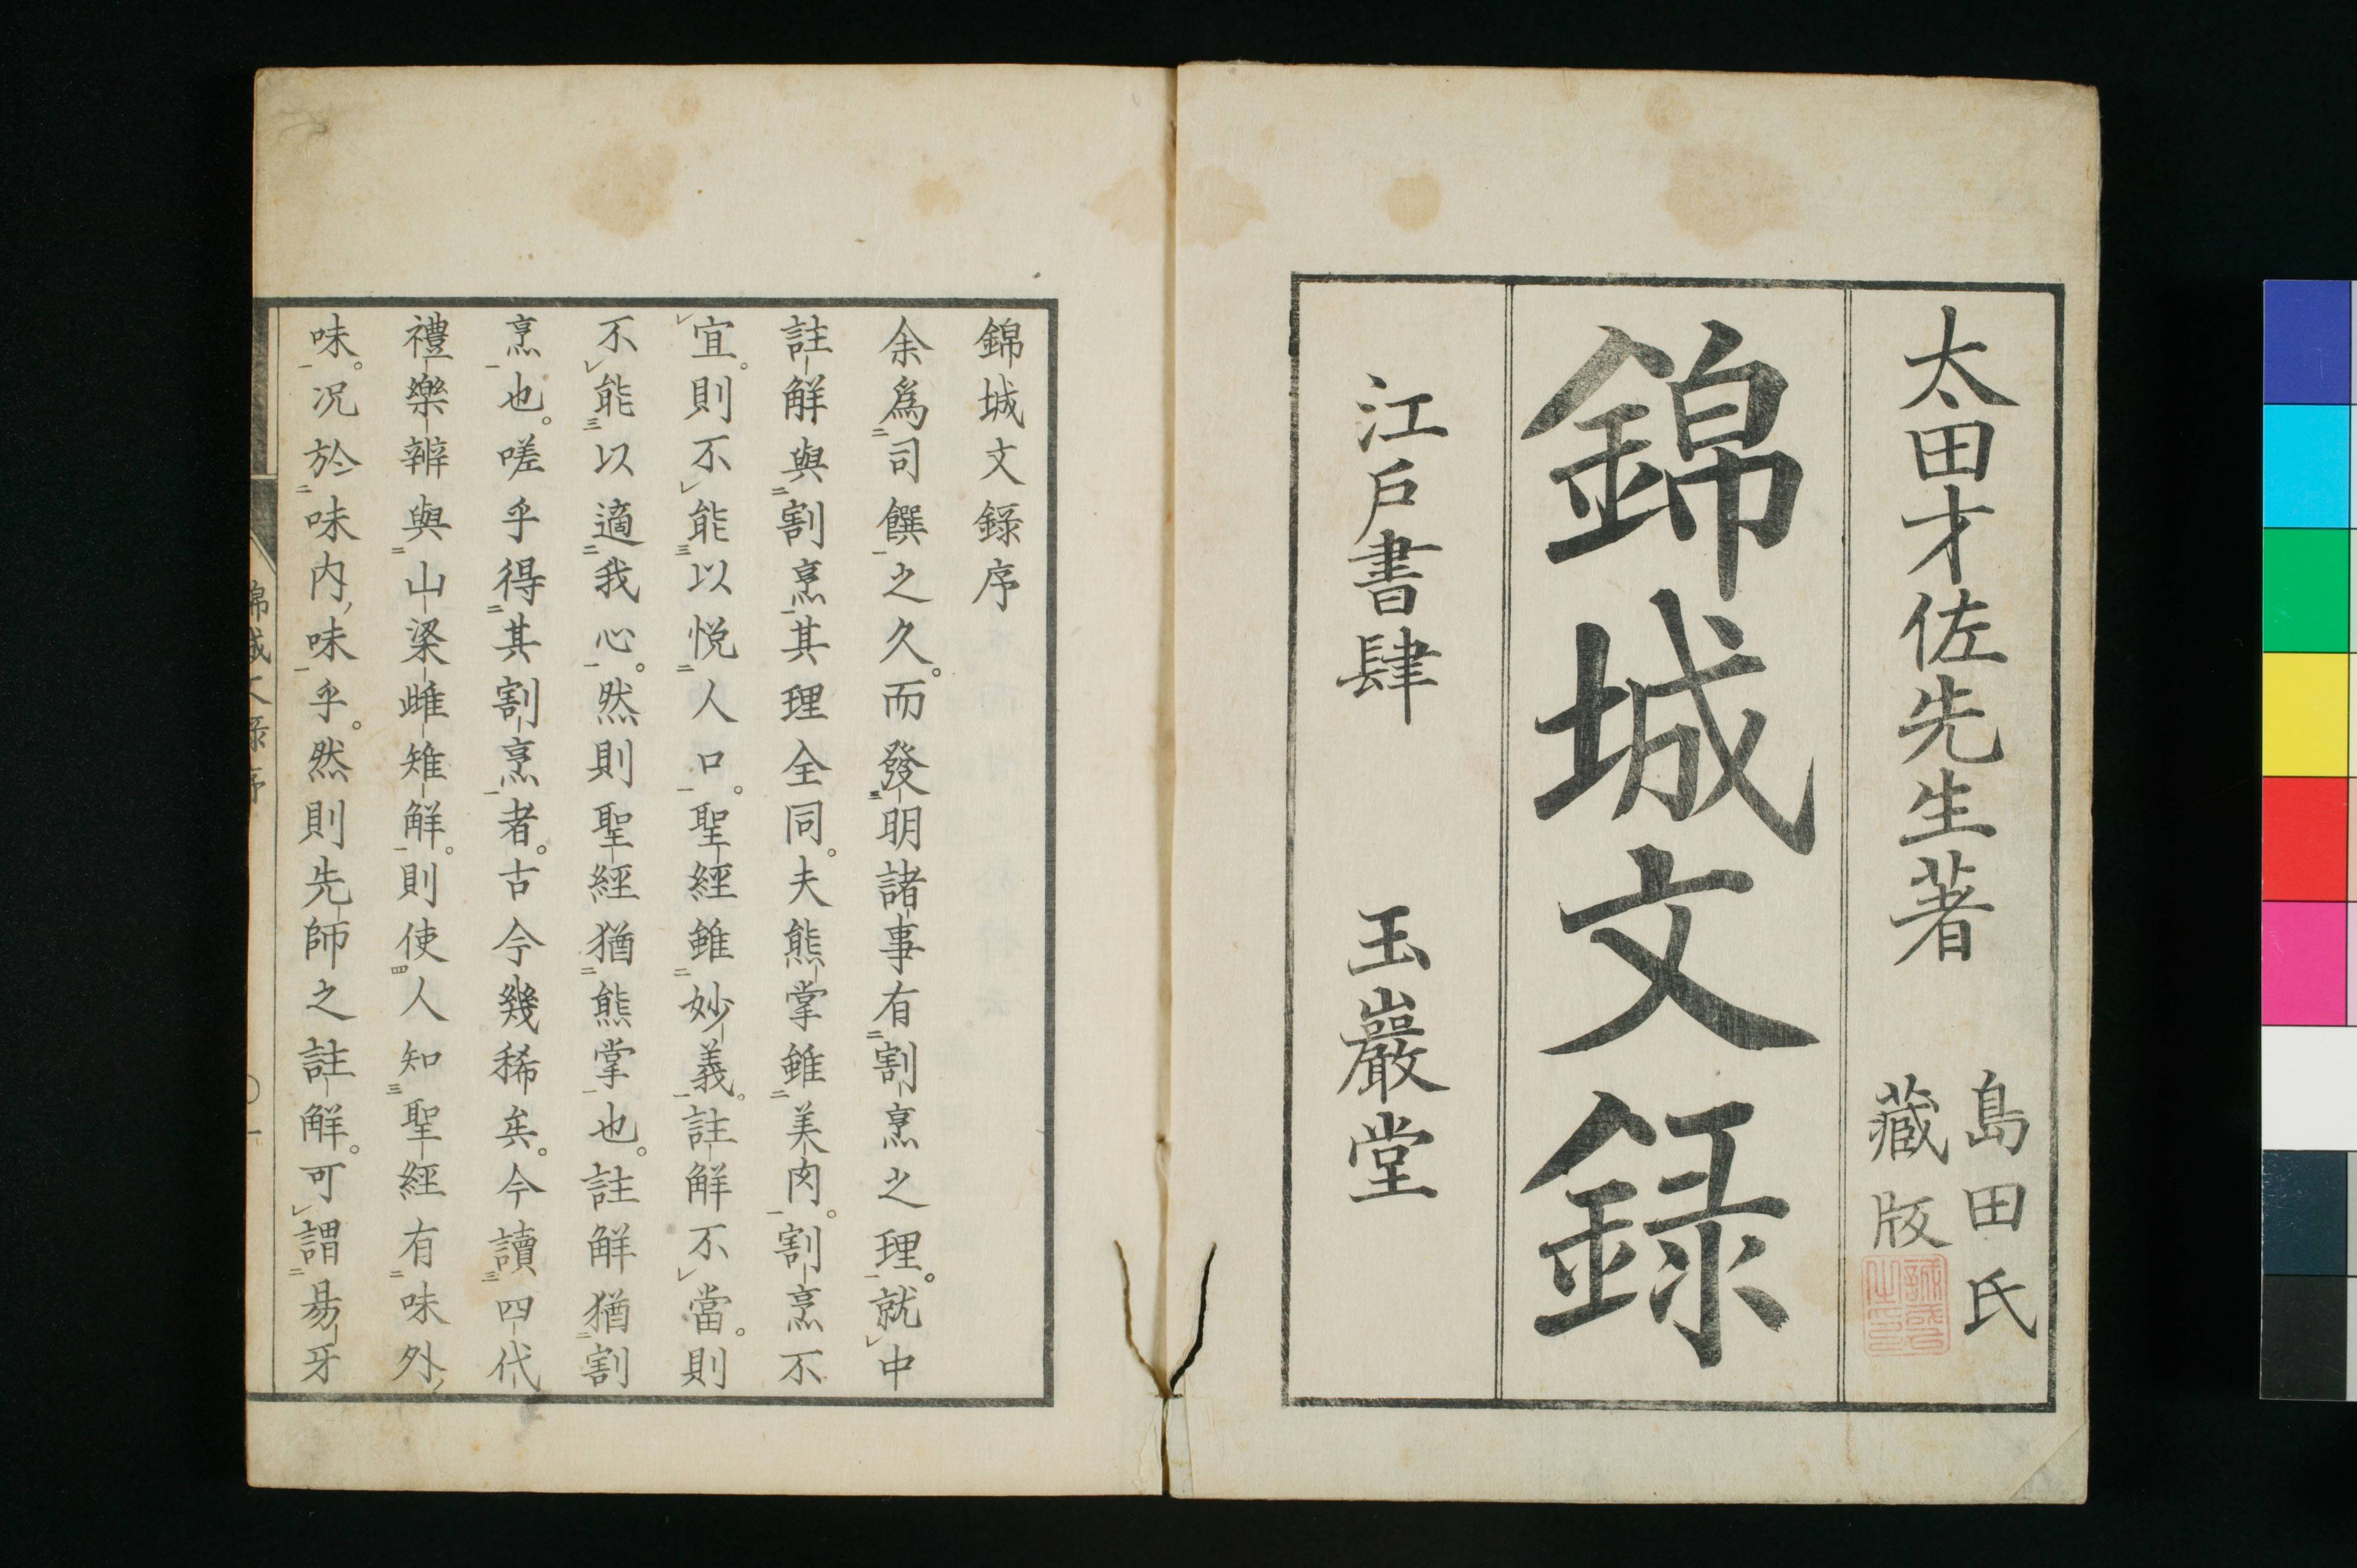 太田才佐先生著
島田氏
藏版
錦城文録
江戸書肆 玉巖堂
錦城文録序
余爲司饌之久。而發明諸事有割烹之理。就中
註解與割烹其理全同。夫熊掌雖美肉。割烹不
宜。則不能以悦人口。聖經雖妙義。註解不當。則
不能以適我心。然則聖經猶熊掌也。註解猶割
烹也。嗟乎得其割烹者。古今幾稀矣。今讀四代
禮樂辨與山梁雌雉解。則使人知聖經有味外
味。況於味内味乎。然則先師之註解。可謂易牙
錦城文録序
一